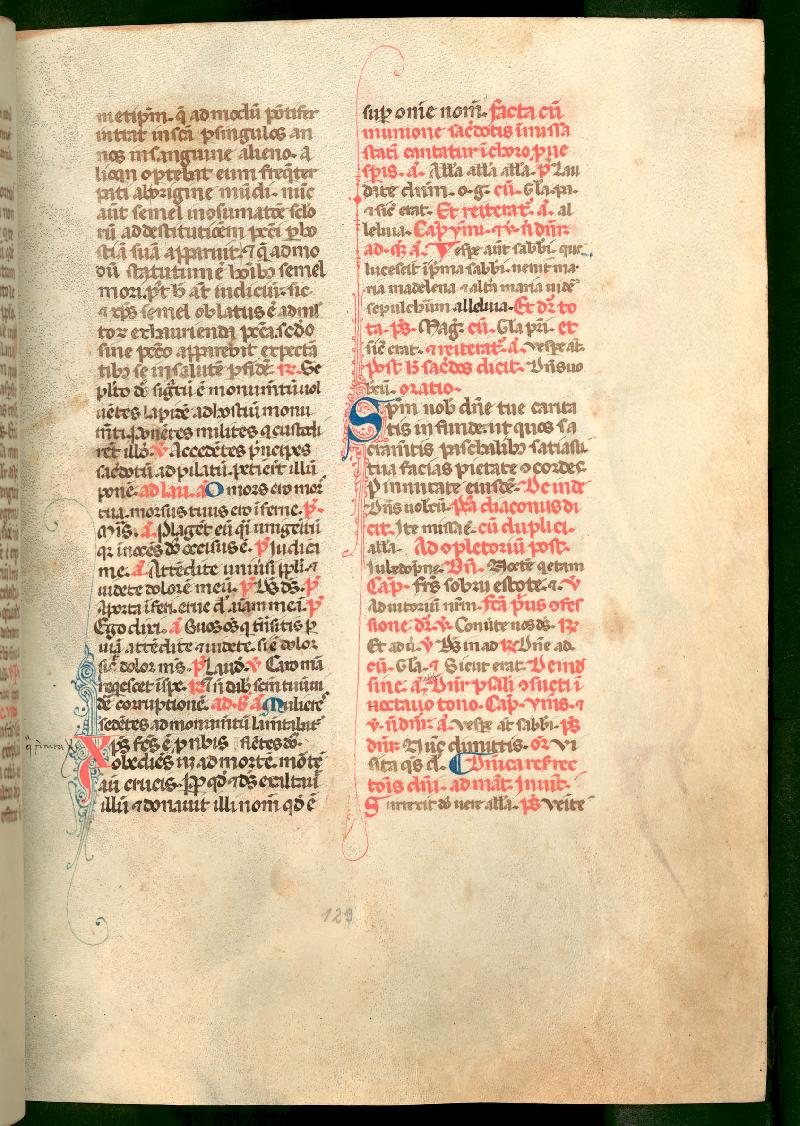 metip̄m. q̄ ad modū pōtifex
intrat in scā p singulos an
nos in sanguine alieno. a
lioqn optebat eum freq̄ter
pati ab origine mūdi. nūc
aūt semel in osumatōe sclo
rū ad destitutiōem pcti p ho
stiā suā apparuit. ⁊ q̄ admo
dū statutum ē hoībꝫ semel
mori. pꝰt h̄ aūt iudiciū. sic
⁊ xp̄s semel oblatus ē ad ml̄
torꝫ exhaurienda pctā. scd̄o
sine pctō apparebit expectā
tibꝫ se in salutē p fidē. R. Se
pl̄to dn̄o sigtū ē monumtū uol
uētes lapidē ad hostiū monu
mti. Ponētes milites q custodi
rēt illū. v Accedētes pncipes
sacdotū ad pilatū petierūt illū
ponē. ad lau. a O mors ero mor
tua. morsus tuus ero īferne. p.
Mis. a. Plāgēt eū q̄i unigeitū
qꝛ inocēs dn̄s occisus ē. p̄ Judica
me. a Attēdite uniusi ppl̄i ⁊
uidete dolorē meū. p̄ Ds ds. p
Aporta īferi. erue dn̄e aiam meā. p
Ego dixi. a O uos oēs q trāsitis p
uiā attēdite ⁊ uidete. si ē dolor
sic̄ dolor ms. p̄ Laud. v Caro mā
reqescet ī spe. R Nō dabis scm̄ tuum
de corruptionē. ad b a Muliere
sedētes ad monumtū lamtabāt̄
q p nra Xp̄s fcs ē p nobis flētes dn̄.
obediēs usqꝫ ad mortē. mortē
aūt crucis. Ppt̄ qd̄ ⁊ ds exaltauit
illū ⁊ donauit illi nom̄ qd̄ ē
sup omē nom̄. facta cū
munione sacdotis ī missa
stati cantatur ī choro p ue
spis. a. All'a all'a all'a. p̄ Lau
date dūm. o. g. cū. Gl̄a. pri.
⁊ sic̄ erat. Et reiterat̄. a. al
leluia. Cap. ymn. ⁊ v̄. n̄ dn̄r
ad. m̄. a. Vespe aūt sabbi. que
lucescit ī pma sabbi. uenit ma
ria madelena ⁊ alt̄a maria uidē
sepulchrum alleluia. Et dr̄ to
ta. ps. Mag. cū. Gl̄a pri. et
sic̄ erat. ⁊ reiterat̄. a. Vespe at.
post h̄ sacdos dicit. Dn̄s uo
bcū. oratio.
Spm̄ nob̄ dn̄e tue carita
tis infunde. ut quos sa
cramtis paschalibꝫ satiasti
tua facias pietate ⁊cordes
P in unitate eiusdē. Deinde
Dn̄s uobcū. P̄a diaconus di
cit. Ite missa ē. cū duplici.
alla. Ad ⁊pletoriū post.
Jube dopne. Bn̄. Noctē qetam
Cap. frs̄ sobrii estote. ⁊. v
Adiutoriū nrm̄. fcā pꝰus ⁊fes
sione dr̄. v. Conūte nos ds. R
Et adū. v̄ Ds in ad R Dn̄e ad.
cū. Gl̄a. ⁊ Sicut erat. Deinde
sine. a. Dn̄r psal̄i ⁊sueti ī
noct auo tono. Cap. Ymn̄s. ⁊
v. n̄ dn̄r. a. Vespe at̄ sabbi. ps
dn̄r Nūc dimittis. or̄. Vi
sita qs d. Dn̄ica resrrec
tōis dn̄i. ad mat̄. Inuit̄.
Surrexit dn̄s uere alla. ps Venite
129